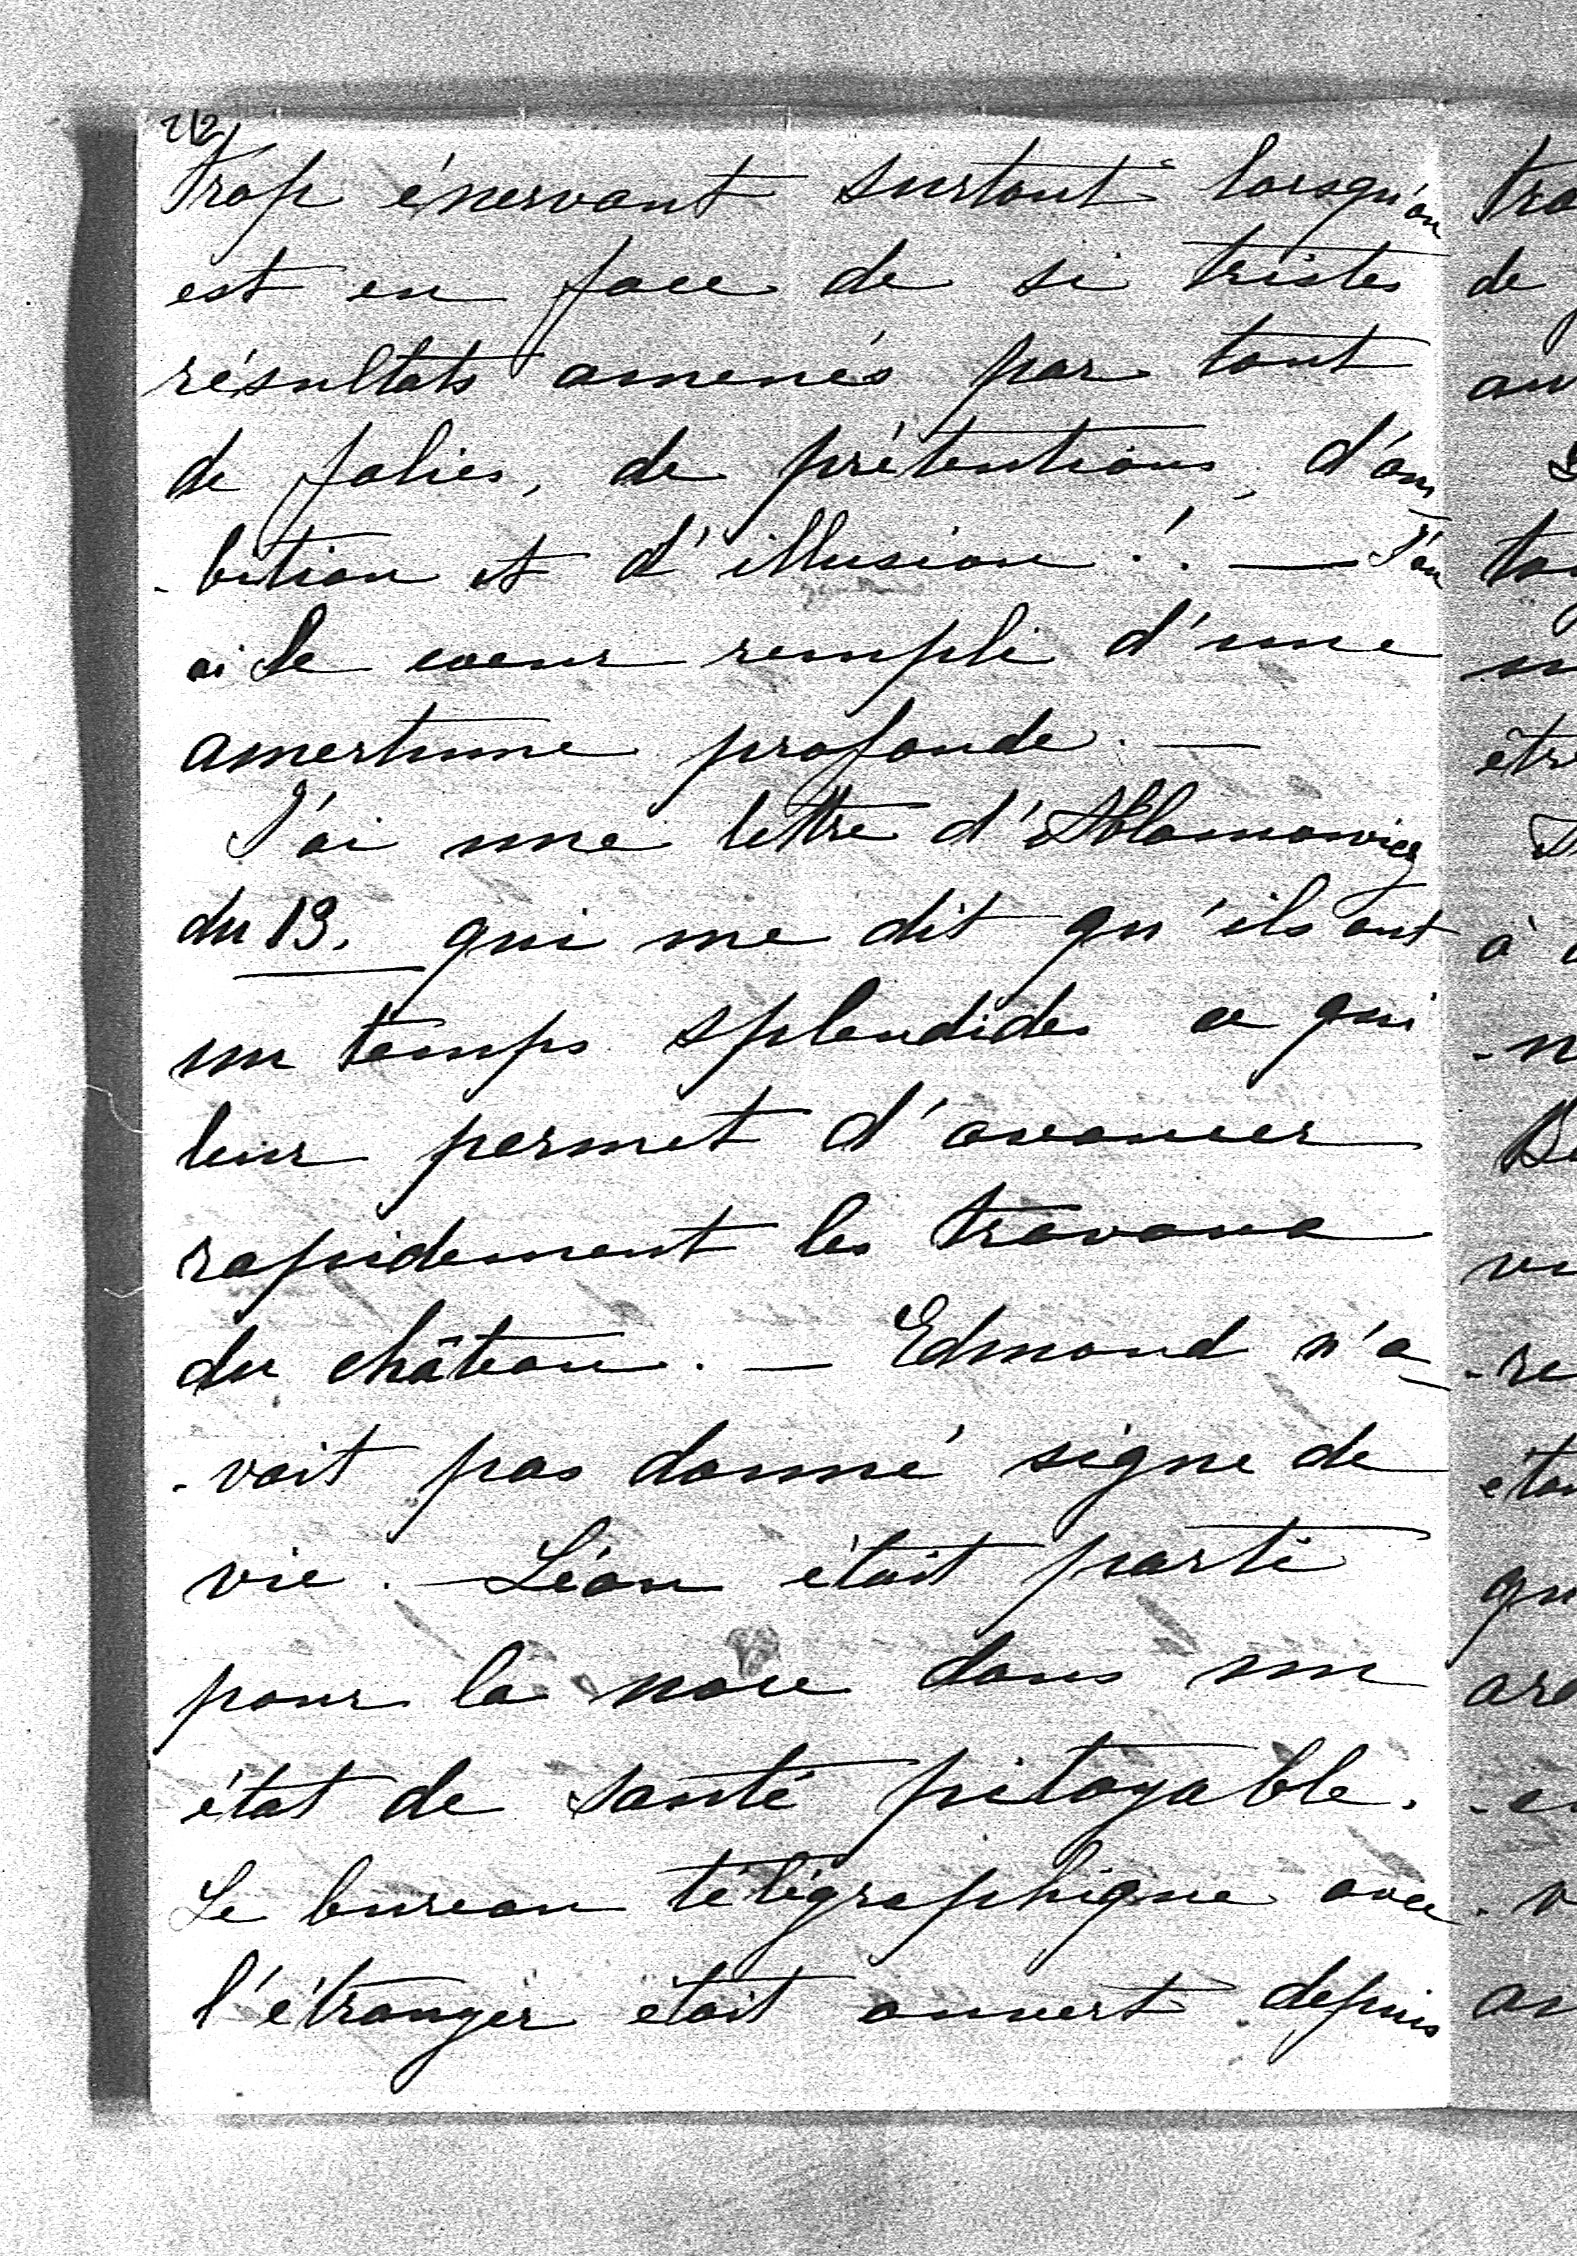 212
trop énervant surtout lorsqu'on
est en face de si tristes
résultats amenés par tant
de folies, de prétentions, d'am
-bition et d'illusion ! . — J'en
ai le coeur rempli d'une
amertume profonde. —
J'ai une lettre d'Ablamowicz
du 13. qui me dit qu'ils ont
un temps splendide ce qui
leur permet d'avancer
rapidement les travaux
du château. — Edmond n'a-
-vait pas donné signe de
vie. — Léon était parti
pour la noce dans un
état de santé pitoyable.
Le bureau télégraphique avec
l'étranger était ouvert depuis